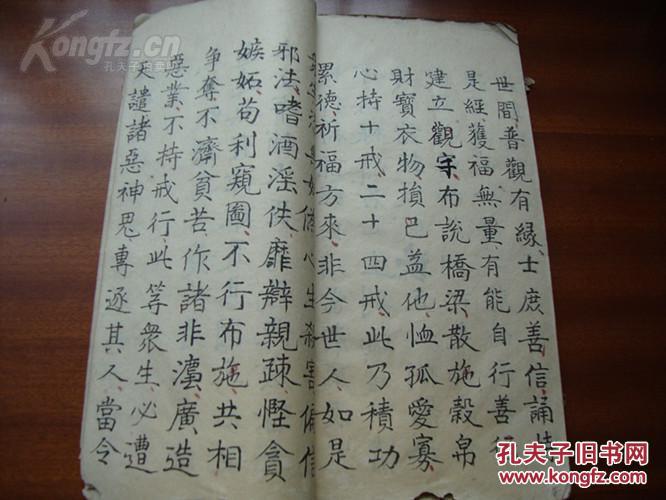 世間普觀有緣士庶善信誦
是經獲福無量有能自行善行
建立觀宇布說橋梁散施穀帛
財寶衣物損己益他恤孤愛寡
心持十戒二十四戒此乃積功
累德祈福方來非今世人如是
心生殺害偏信
邪法嗜酒淫佚靡辯親疎慳貪
嫉妬苟利窺圖不行布施共相
争奪不濟貧苦作諸非濫廣造
惡業不持戒行此等衆生必遭
天譴諸惡神鬼專逐其人當令
Kongfz.com
孔夫子旧书网
孔夫子旧书网
KONGFZ.COM